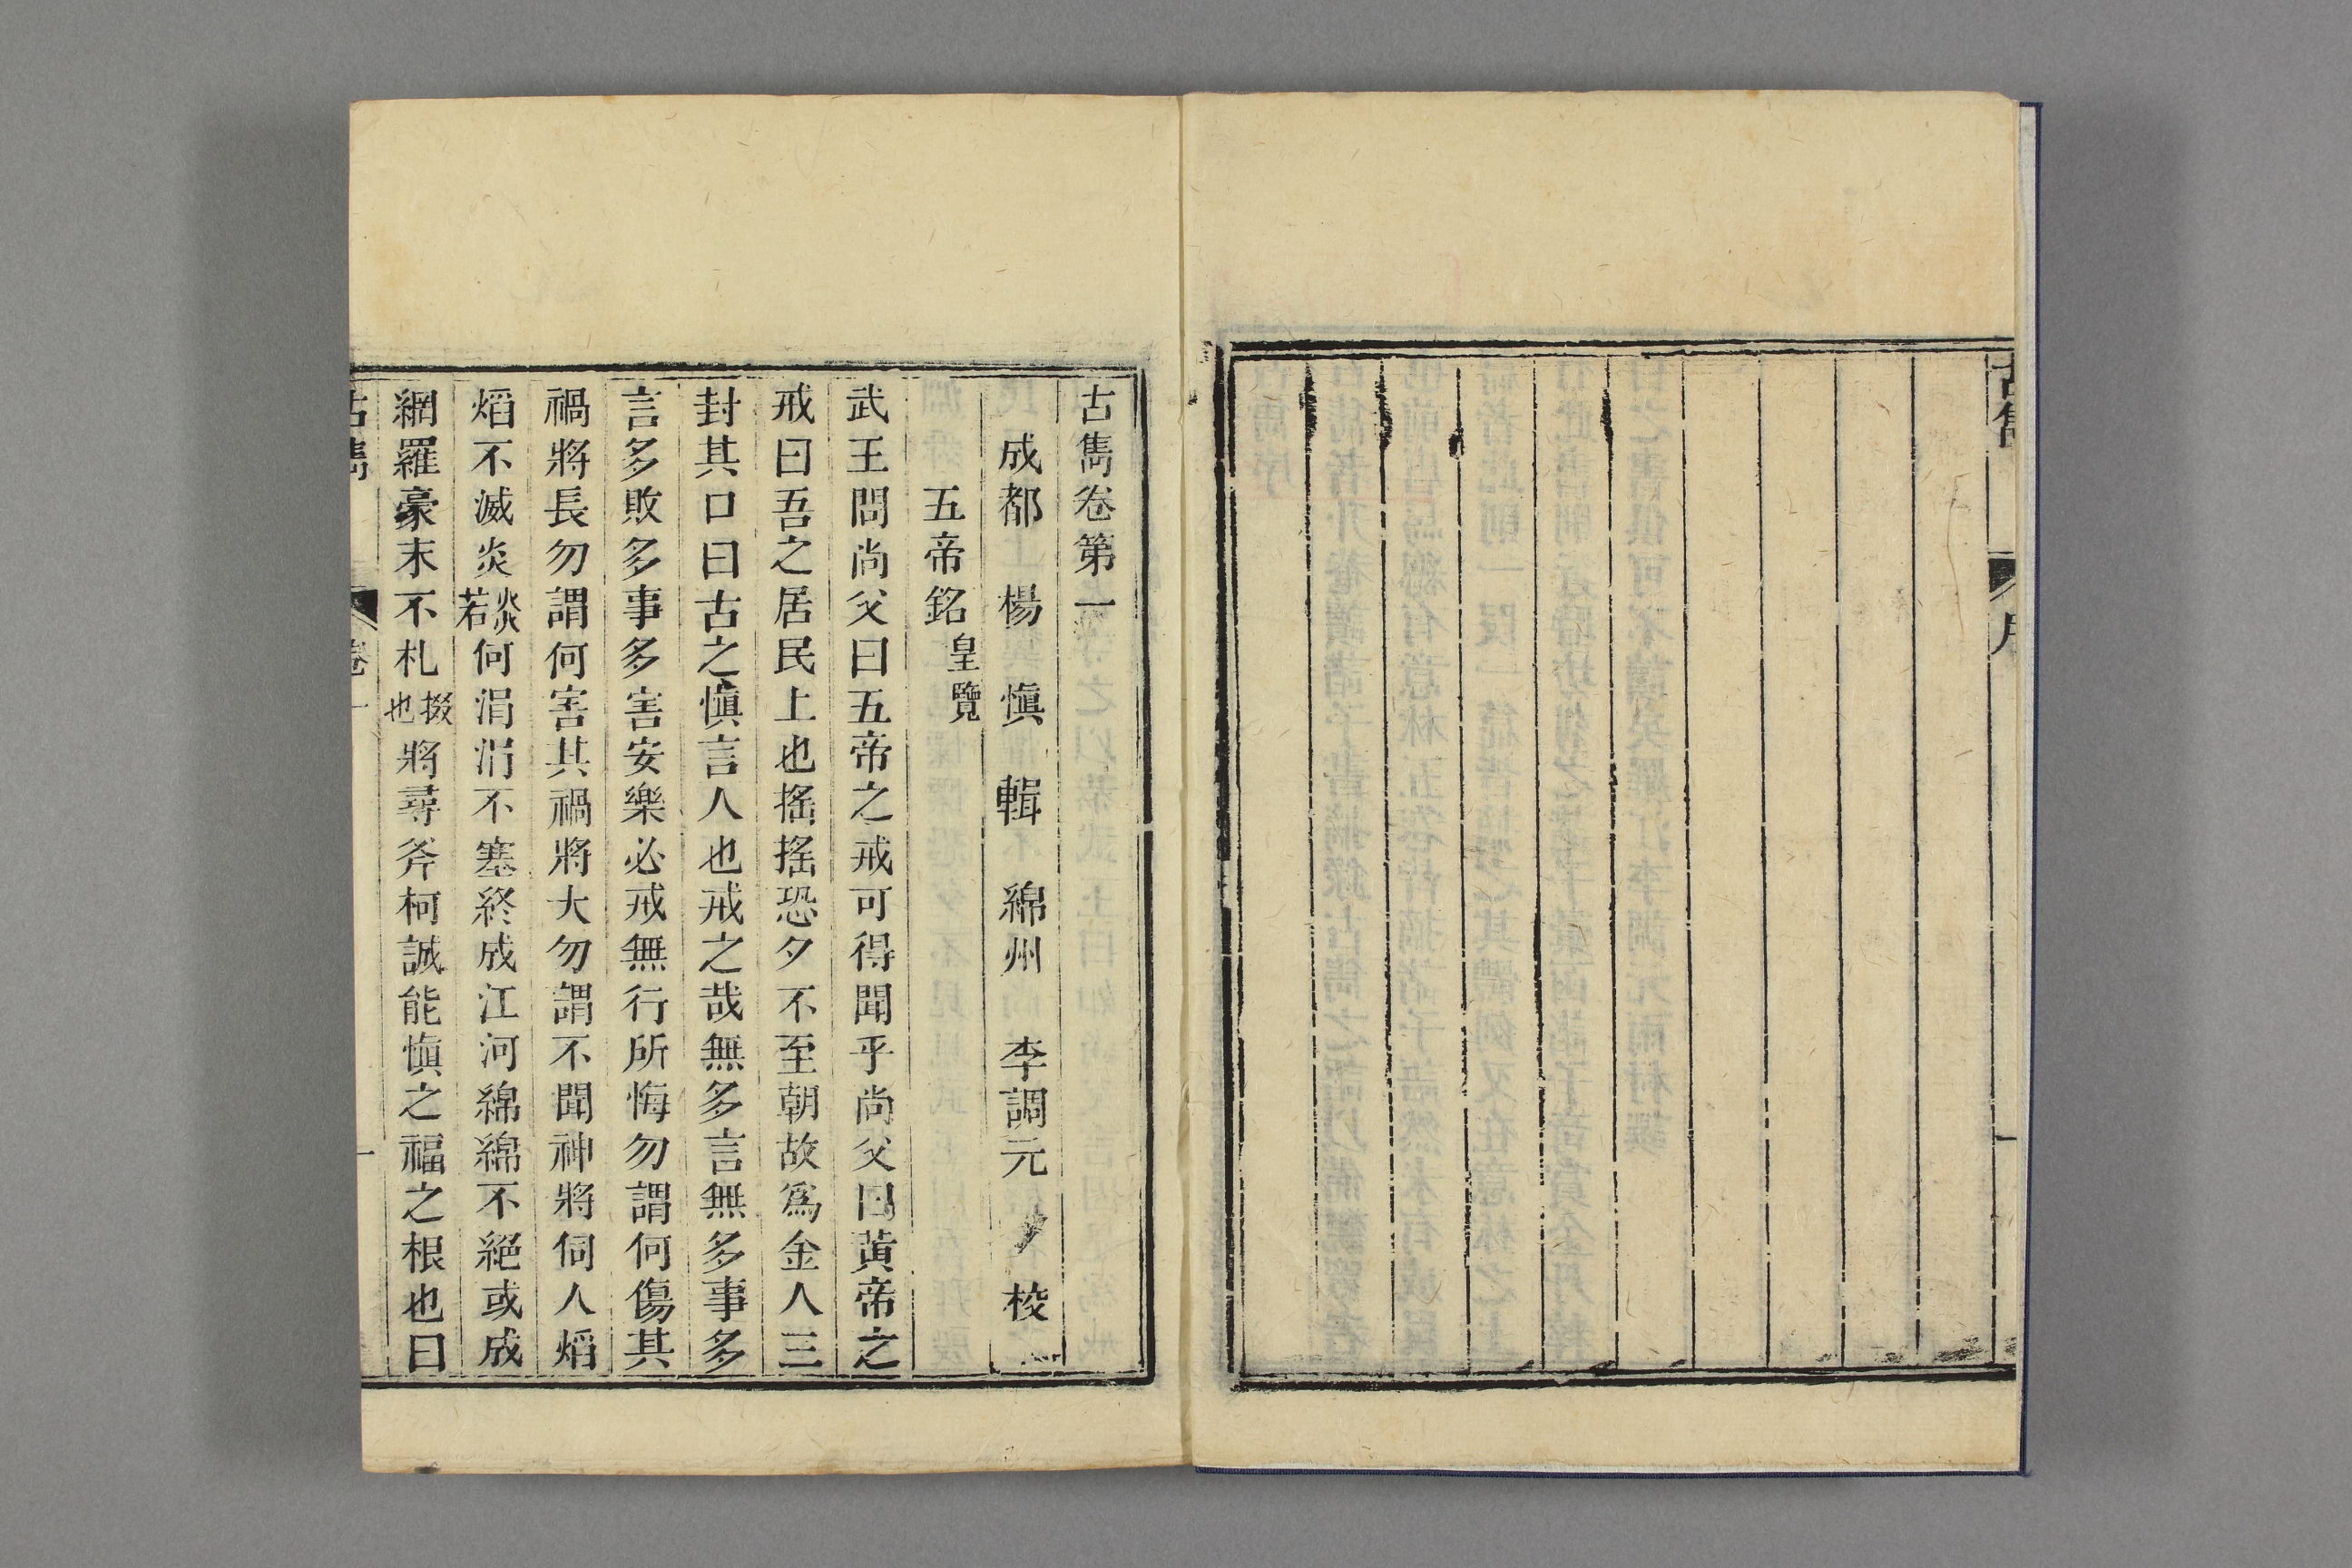 古雋
古雋卷第一
成都 楊慎 輯 綿州 李調元 校
五帝銘 皇覽
武王問尚父曰五帝之戒可得聞乎尚父曰黃帝之
戒曰吾之居民上也搖搖恐夕不至朝故爲金人三
封其口曰古之慎言人也戒之哉無多言無多事多
言多敗多事多害安樂必戒無行所悔勿謂何傷其
禍將長勿謂何害其禍將大勿謂不聞神將伺人熖
熖不滅炎炎若何涓涓不塞終成江河綿綿不絕或成
網羅豪末不札掇也將尋斧柯誠能慎之福之根也曰
古雋 卷一 一